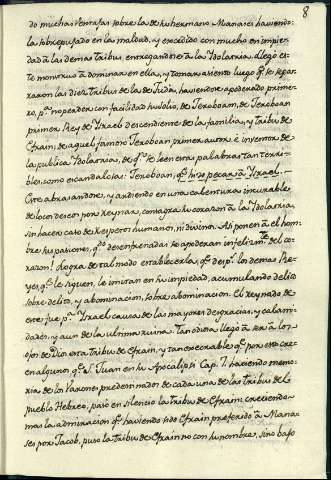 8
do muchas ventajas sobre la de su hermano Manases haviendo
la sobrepujado en la maldad, y excedido con mucho en impie-
dad à las demas tribus, entregandose à la Idolatria. llegó es-
te monstruo à dominar en ella, y tomar asiento luego qᵉ se sepa-
raron las diez tribus de la de Judà, haviendose apoderado prime-
ro, pᵃ no perder con facilidad su solio, de Jeroboam, de Jeroboan
primer Rey de Ysrael descendiente de la familia, y tribu de
Efrain; de aquel famoso Jeroboan primer autor è inventor de
la publica Idolatria, de qⁿ se leen estas palabras tan terri-
bles como escandalosas: Jeroboan, qᵉ hizo pecar à Ysrael.
Este abrasandose, y ardiendo en una calentura incurable
de los deseos por reynar, consagra su corazon à la Idolatria
sin hacer caso de respeto humano, ni divino. Asi ponen à el hom-
bre sus pasiones, qᵈᵒ desenfrenadas se apoderan infelizmᵗᵉ del co-
razon! Logra de tal modo establecerla, qᵉ despˢ los demas Re-
yes, qᵉ le siguen, le imitan en su impiedad, acumulando delito
sobre delito, y abominacion, sobre abominacion. El reynado de
este fue pᵃ Ysrael causa de las mayores desgracias, y calami-
dades, y aun de la ultima ruina. Tan odiosa llegó à ser à los
ojos de Dios esta tribu de Efrain, y tan execrable qᵉ por esto cre-
en algunos qᵉ S. Juan en su Apocalipsi Cap. 7. haciendo memo-
ria de los Varones predestinados de cada una de las tribus de el
pueblo Hebreo, pasó en silencio la tribu de Efrain; creciendo
mas la admiracion qᵉ haviendo sido Efrain preferido à Mana-
ses por Jacob, puso la tribu de Efrain no con su nombre, sino bajo